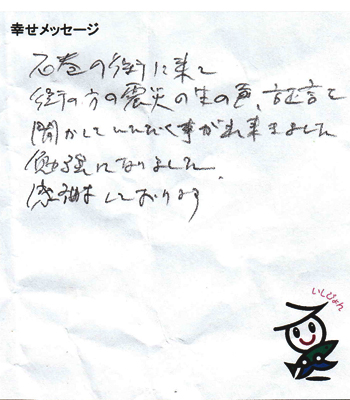 幸せメッセージ
石巻の街に来て
街の方の震災の生の声、証言を
聞かしていただく事が出来ました
勉強になりました。
感謝しております
いしぴょん